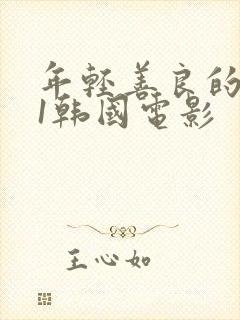 年轻善良的
1韩国电影
王心如